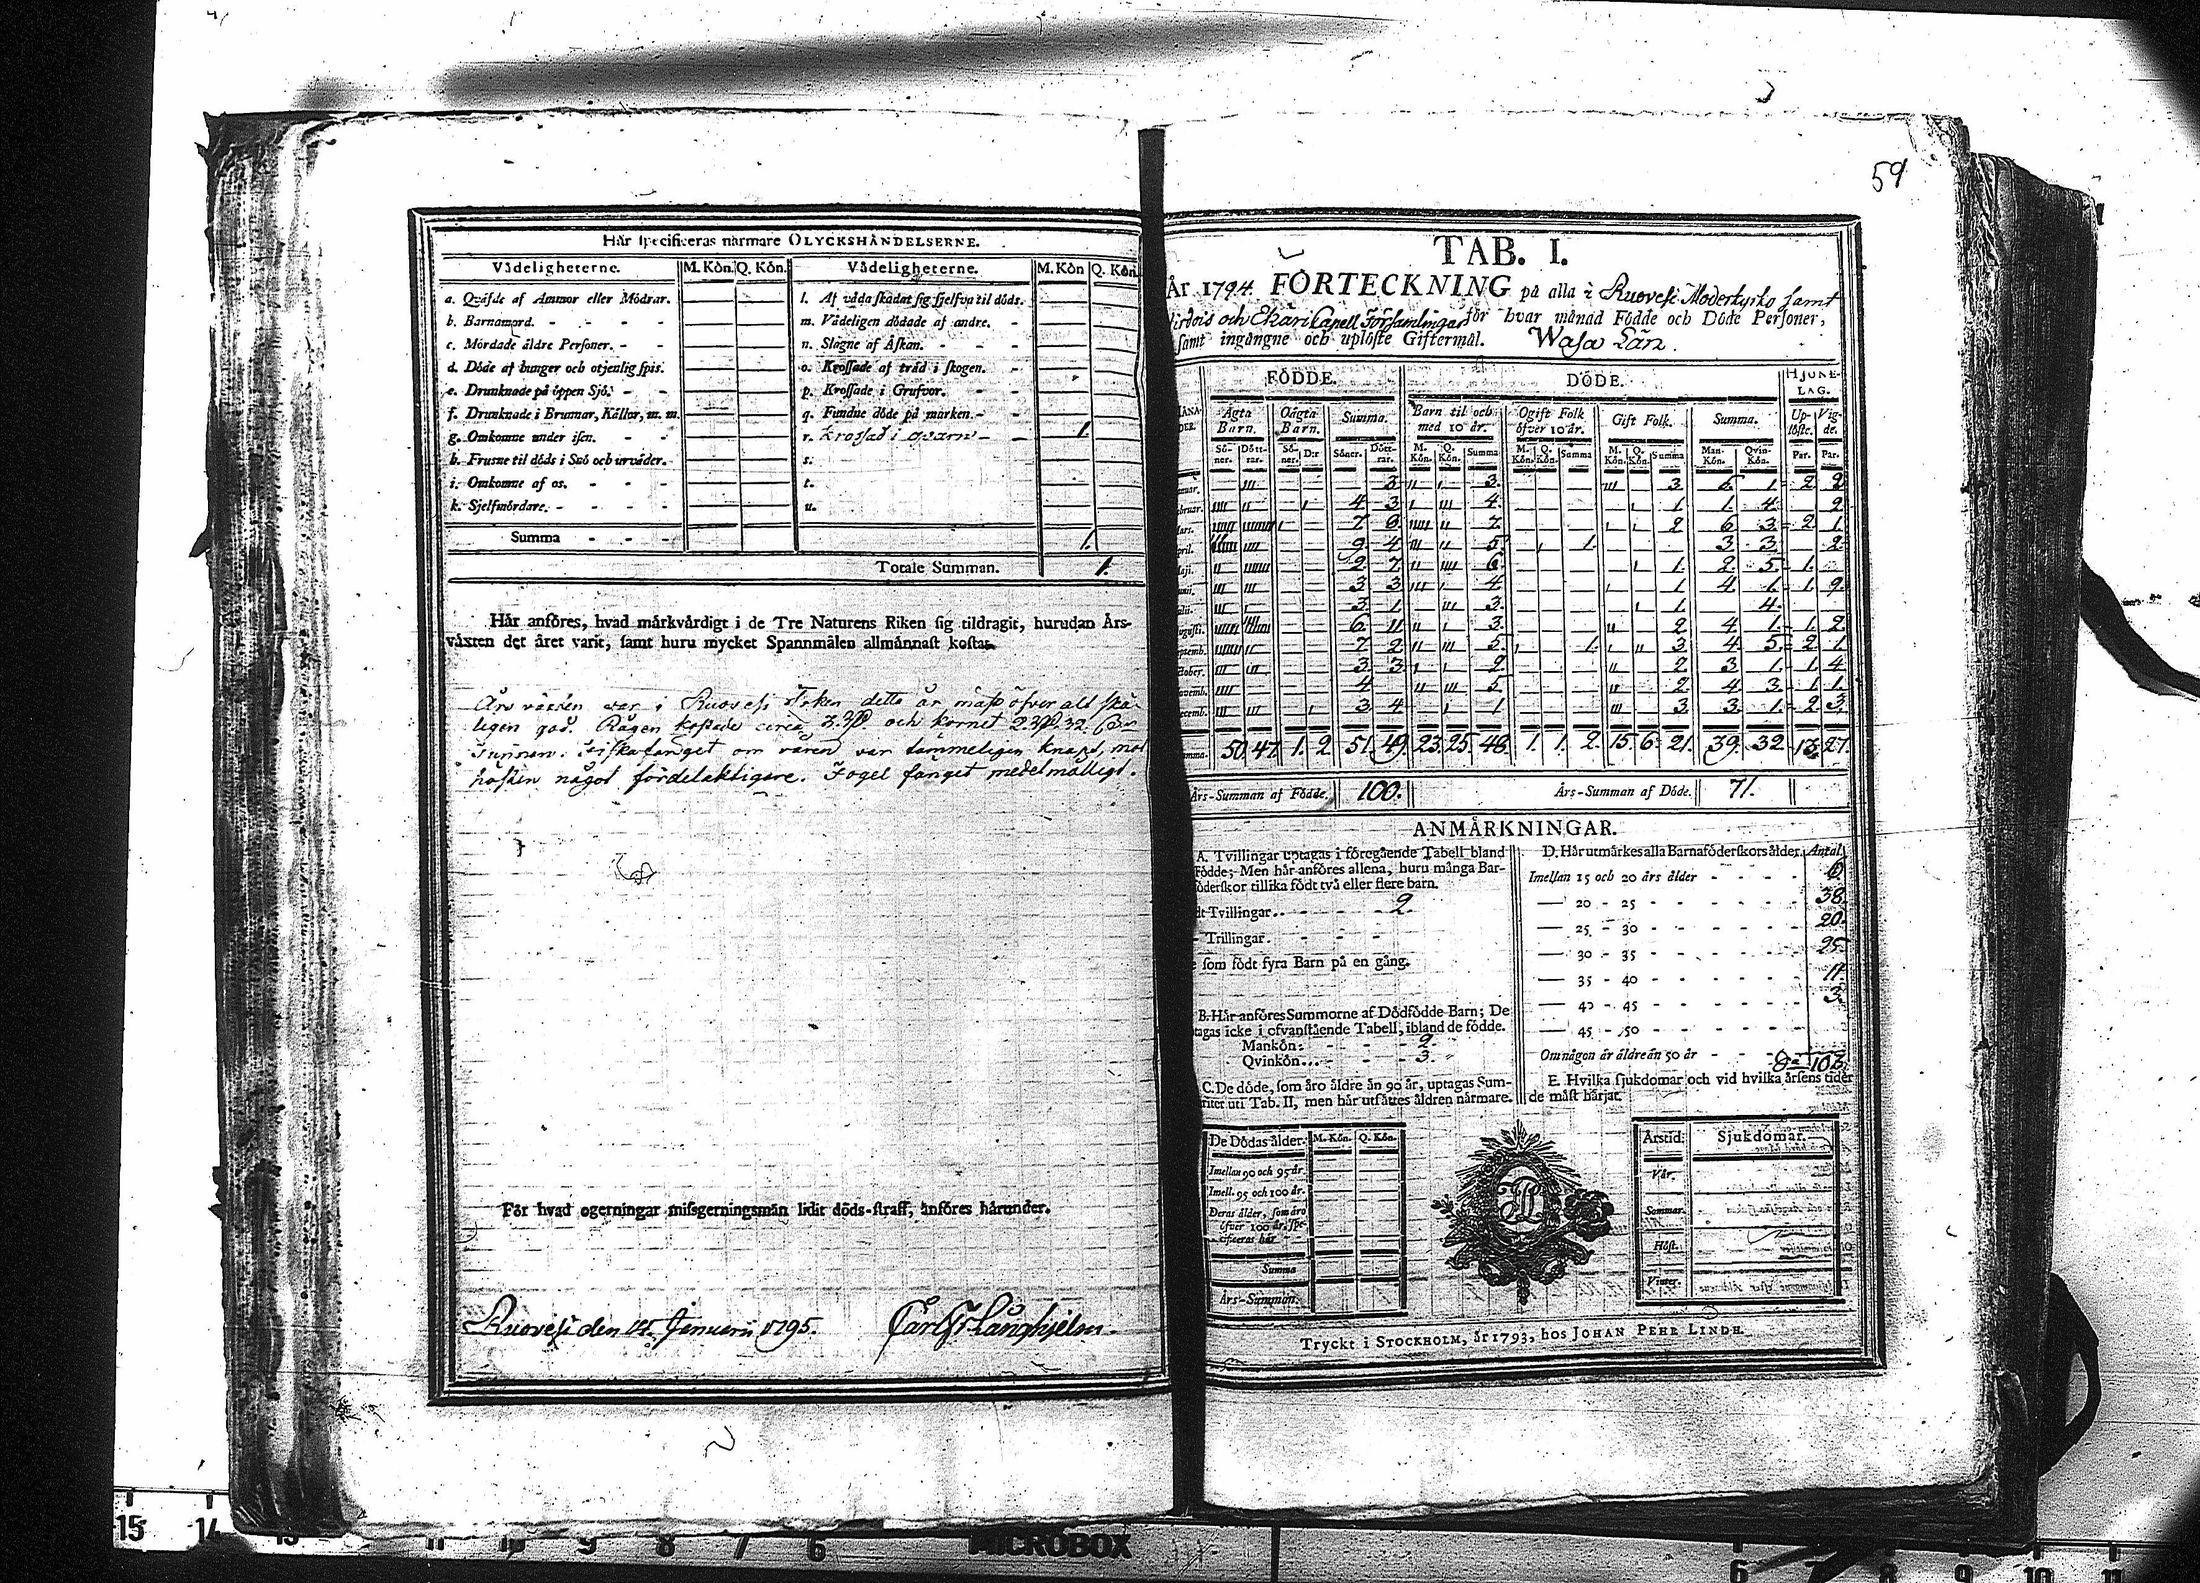 59
Här specificeras närmare OLYCKSHÄNDELSERNE.
Vådeligheterne. M. Kön. Q. Kön. Vådeligheterne. M. Kön Q. Kön.
a. Qväfde af Ammor eller Mödrar. l. Af våda skadat sig sjelfva til döds.
b. Barnamord. - - - - m. Vådeligen dödade af andre. -
c. Mördade äldre Personer. - - n. Slagne af Åskan. - - -
d. Döde af hunger och otjenlig spis. o. Krossade af träd i skogen. -
e. Drunknade på öppen Sjö. - - p. Krossade i Grufvor. - -
f. Drunknade i Brunnar, Källor, m. m. q. Fundne döde på marken. - -
g. Omkomne under isen. - - r. Krossad i qvarn - - 1.
h. Frusne til döds i Snö och urväder. - s.
i. Omkomne af os. - - - t.
k. Sjelfmördare. - - - - u.
Summa - - - 1.
Totale Summan. 1.
Här anföres, hvad märkvärdigt i de Tre Naturens Riken sig tildragit, hurudan Års-
växten det året varit, samt huru mycket Spannmålen allmännast kostat.
Års växten war i Ruovesi Sokn detta år mäst öfver alt skä-
ligen god. Rågen kostade circa 3. och kornet 2 32
Tunnan. Fiskafånget om våren var tämmeligen knapt, mot
hösten något fördelaktigare. Fogel fånget medelmåttigt.
För hvad ogerningar missgerningsmän lidit döds-straff, anföres härunder.
Ruovesi den 15. Januarii 1795. Carl Fr Langhjelm.
TAB. I.
År 1794. FÖRTECKNING på alla i Ruovesi Moderkyrko samt
Virdois och Ekäri Capell Församlingar för hvar månad Födde och Döde Personer,
samt ingångne och uplöste Giftermål. Wasa Län.
FÖDDE. DÖDE. HJONE-LAG.
Ägta Barn. Oägta Barn. Summa. Barn til och med 10 år. Ogift Folk öfver 10 år. Gift Folk. Summa. Up-löste. Vig-de.
Sö-ner. Dött-rar. Sö-ner. D:r Söner. Dött-rar. M. Kön. Q. Kön. Summa M. Kön. Q. Kön. Summa M. Kön. Q. Kön. Summa Man-Kön. Qvin-Kön. Par. Par.
nuar. III 3 II I 3. III 3. 5. 1. 2 2
bruar. IIII II I 4 3 I III 4. I 1 1. 4. 2
Mars. 7 8 II 7. I I 2 6 3. 2 1.
pril. 9. 4 III II 5 I 1. 3. 3. 2.
Maji. II 2 7 II IIII 6. I 1. 2. 5. 1.
unii. III III 3 3 III I 4. I 1 4. 1. 1. 2.
ulii. III I 3. 1 III 3. I 1. 4.
ugusti. 6 11 II I 3. II 2 4. 1. 1. 2
eptemb. II 7 2 II III 5. I 1. I II 3. 4. 5. 2 1.
ctober. III III 3 3 I I 2. II 2 3. 1. 1. 4
ovemb. IIII 4 II III 5. II 2 4 3. 1. 1.
ecemb. III III I 3 4 I 1 III 3 3. 1. 2 3.
Summa. 50. 47. 1. 2 51. 49. 23. 25. 48. 1. 1. 2. 15. 6. 21. 39. 32. 13. 27.
Års-Summan af Födde. 100. Års-Summan af Döde. 71.
ANMÄRKNINGAR.
A. Tvillingar uptagas i föregående Tabell bland
födde; Men här anföres allena, huru många Bar-
föderskor tillika födt två eller flere barn.
dt Tvillingar. - - - - 2.
- Trillingar. - - -
e som födt fyra Barn på en gång.
B. Här anföres Summorne af Dödfödde Barn; De
tagas icke i ofvanstående Tabell, ibland de födde.
Mankön: - - - - 2.
Qvinkön. - - - 3.
C. De döde, som äro äldre än 90 år, uptagas Sum-
riter uti Tab. II, men här utsättes åldren närmare.
D. Här utmärkes alla Barnaföderskors ålder. Antal
Imellan 15 och 20 års ålder - - - - 6.
— 20 - 25 - - - - 38.
— 25 - 30 - - - - 20.
— 30 - 35 - - - - 25.
— 35 - 40 - - - - 11.
— 40 - 45 - - - - 3.
— 45 - 50 - - - -
Om någon är äldre än 50 år - - 103.
E. Hvilka sjukdomar och vid hvilka årsens tider
de mäst härjat.
De Dödas ålder. M. Kön. Q. Kön.
Imellan 90 och 95 år.
Imell. 95 och 100 år.
Deras ålder, som äro
öfver 100 år, spe-
cificeras här -
Summa
Års-Summan.
Årstid. Sjukdomar.
Vår.
Sommar.
Höst.
Vinter.
Tryckt i STOCKHOLM, år 1793, hos JOHAN PEHR LINDH.
15 14 13 11 10 9 8 7 6 MICROBOX 6 7 8 9 10 11